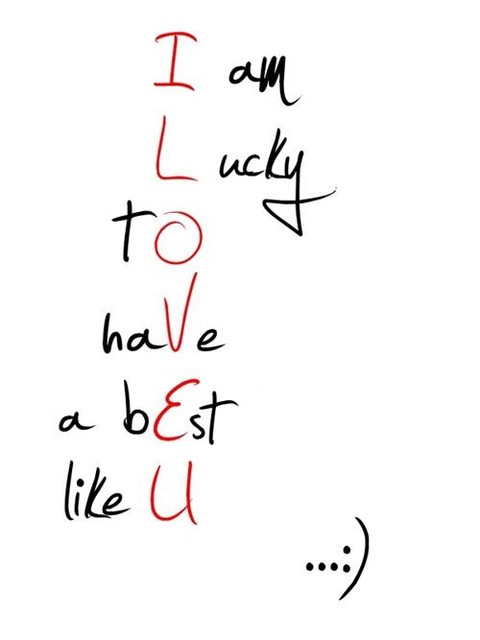 I am
Lucky
tO
haVe
a bEst
like U
...:)